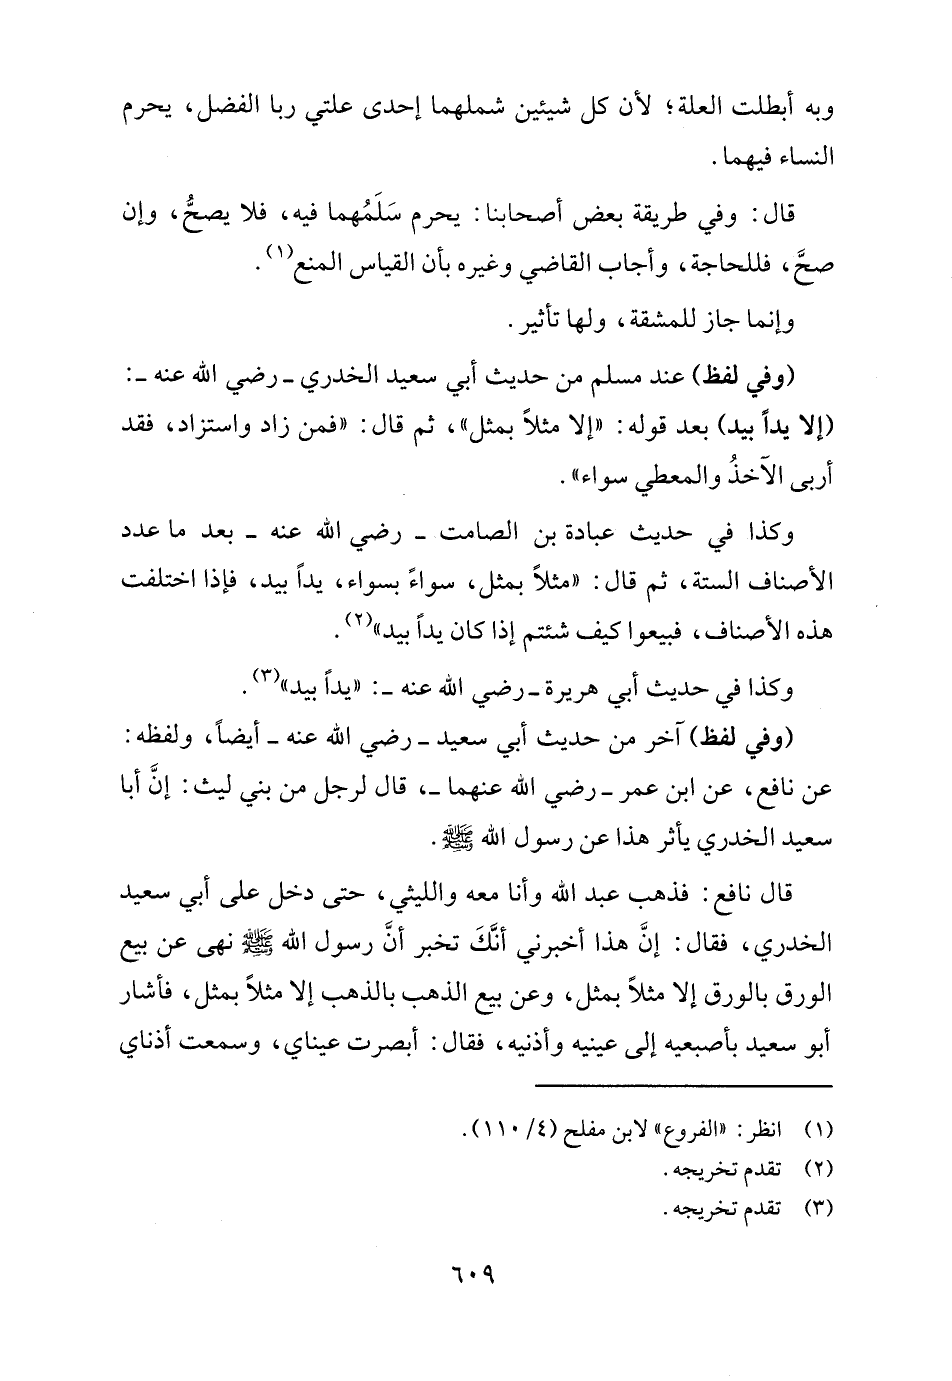 وبه أبطلت العلة؛ لأن كل شيئين شملهما إحدى علتي ربا الفضل، يحرم
النساء فيهما.
قال: وفي طريقة بعض أصحابنا: يحرم سَلَمُهما فيه، فلا يصحُّ، وإن
صحَّ، فللحاجة، وأجاب القاضي وغيره بأن القياس المنع(١).
وإنما جاز للمشقة، ولها تأثير.
(وفي لفظ) عند مسلم من حديث أبي سعيد الخدري ـ رضي الله عنه ـ:
(إلا يداً بيد) بعد قوله: «إلا مثلاً بمثل»، ثم قال: «فمن زاد واستزاد، فقد
أربى الآخذُ والمعطي سواء».
وكذا في حديث عبادة بن الصامت ـ رضي الله عنه ـ بعد ما عدد
الأصناف الستة، ثم قال: «مثلاً بمثل، سواءً بسواء، يداً بيد، فإذا اختلفت
هذه الأصناف، فبيعوا كيف شئتم إذا كان يداً بيد»(٢).
وكذا في حديث أبي هريرة ـ رضي الله عنه ـ: «يداً بيد»(٣).
(وفي لفظ) آخر من حديث أبي سعيد ـ رضي الله عنه ـ أيضاً، ولفظه:
عن نافع، عن ابن عمر ـ رضي الله عنهما ـ، قال لرجل من بني ليث: إنَّ أبا
سعيد الخدري يأثر هذا عن رسول الله ﷺ.
قال نافع: فذهب عبد الله وأنا معه والليثي، حتى دخل على أبي سعيد
الخدري، فقال: إنَّ هذا أخبرني أنَّكَ تخبر أنَّ رسول الله ﷺ نهى عن بيع
الورق بالورق إلا مثلاً بمثل، وعن بيع الذهب بالذهب إلا مثلاً بمثل، فأشار
أبو سعيد بأصبعيه إلى عينيه وأذنيه، فقال: أبصرت عيناي، وسمعت أذناي
(١) انظر: «الفروع» لابن مفلح (٤/ ١١٠).
(٢) تقدم تخريجه.
(٣) تقدم تخريجه.
٦٠٩